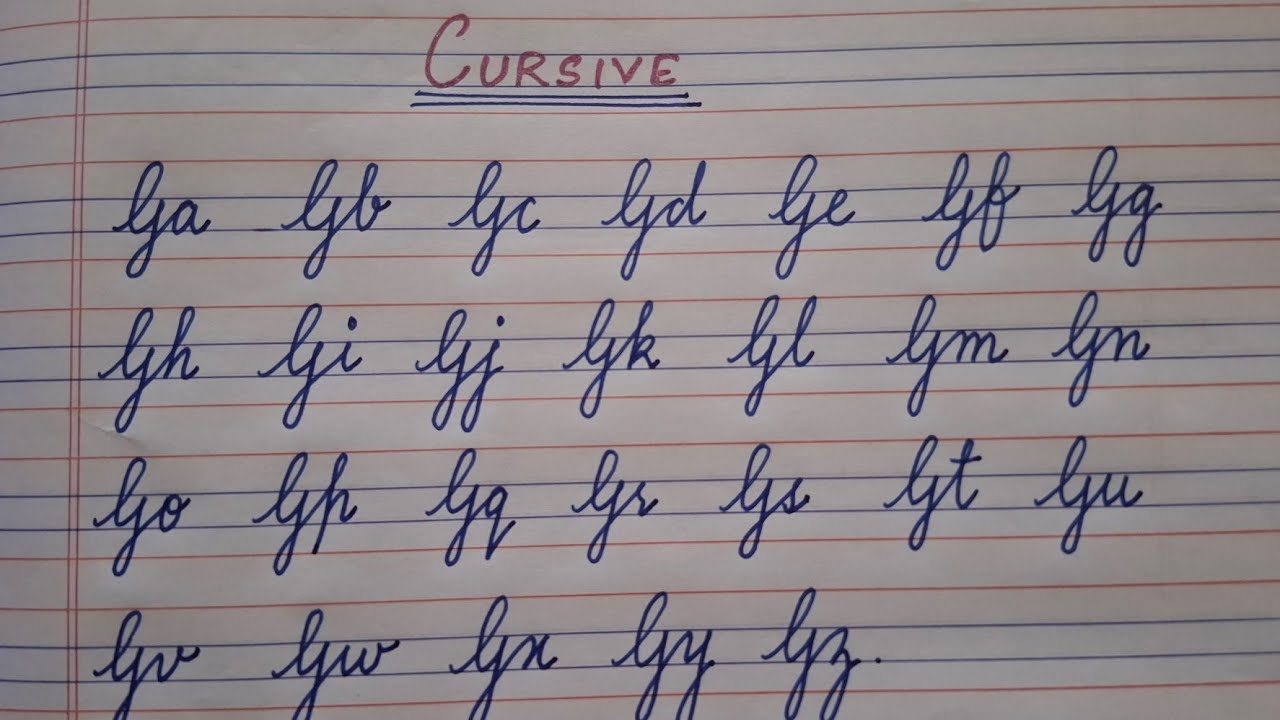 CURSIVE
Ga Gb Gc Gd Ge Gf Gg
Gh Gi Gj Gk Gl Gm Gn
Go Gp Gq Gr Gs Gt Gu
Gv Gw Gx Gy Gz.